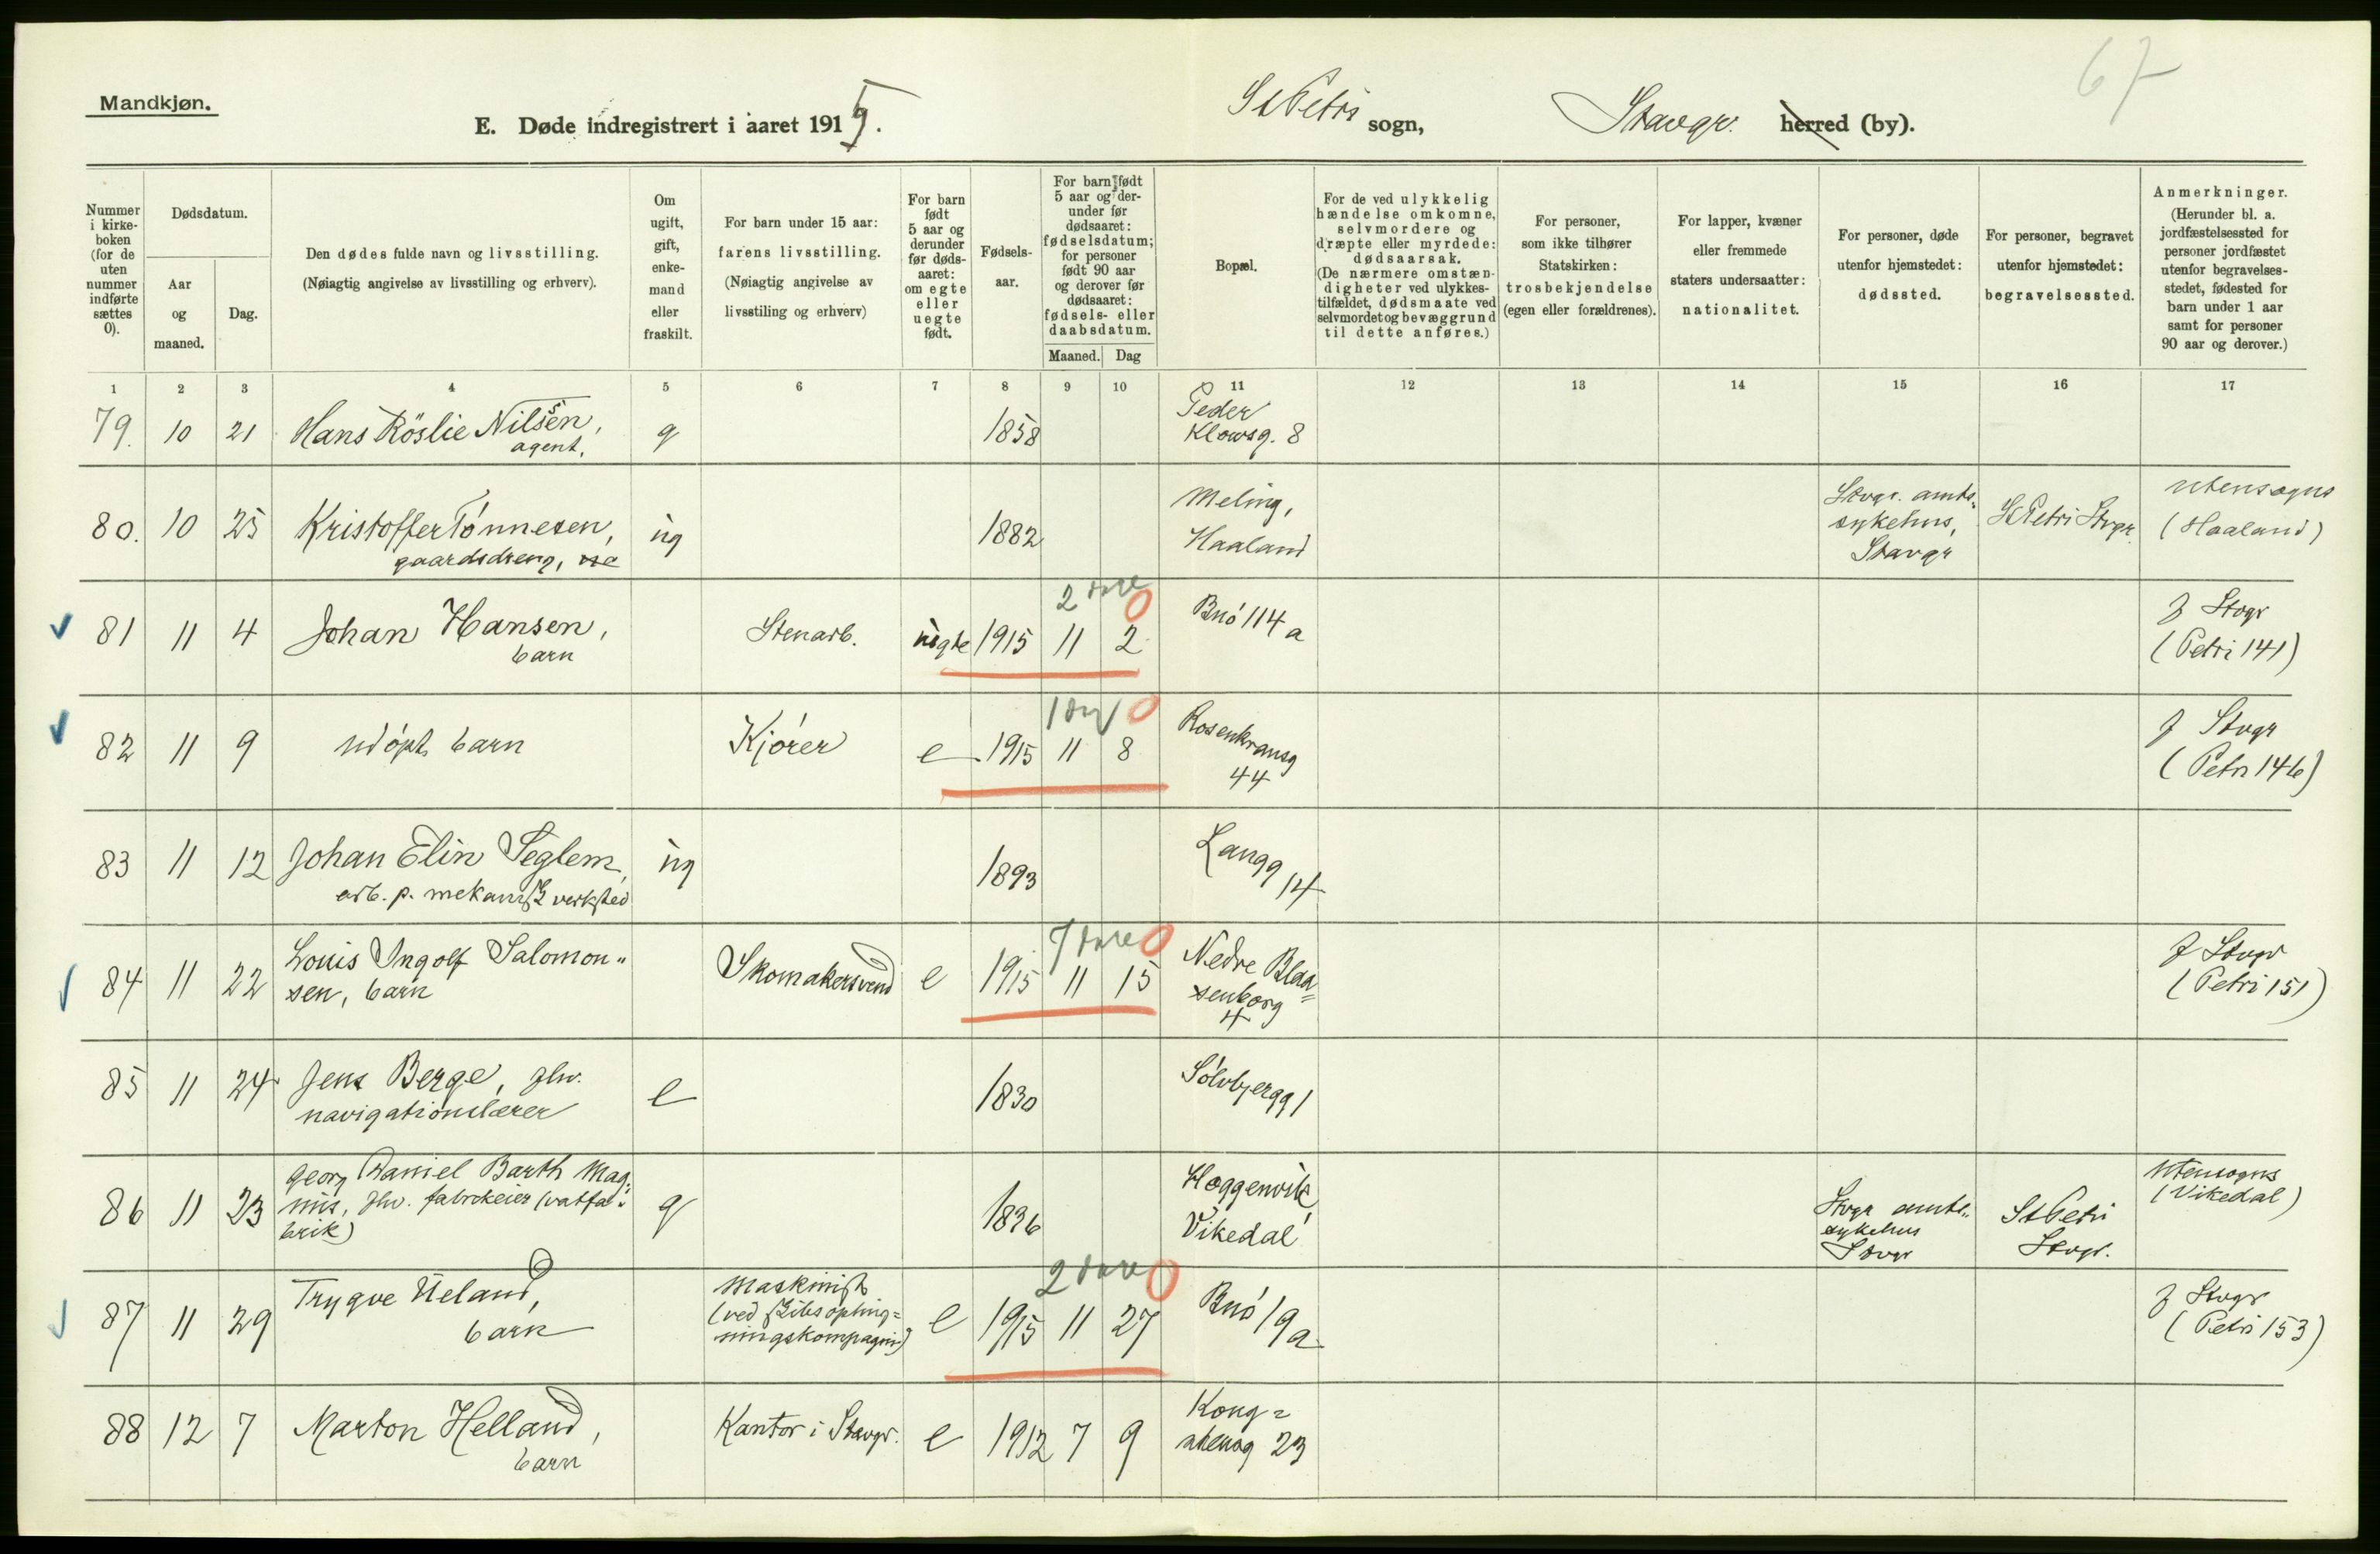 67
Mandkjøn.
E. Døde indregistrert i aaret 1915.
St Petri sogn,
Stavgr. herred (by).
Nummer i kirkeboken (for de uten nummer indførte sættes 0).
Dødsdatum.
Aar og maaned.
Dag.
Den dødes fulde navn og livsstilling.
(Nøiagtig angivelse av livsstilling og erhverv).
Om ugift, gift, enkemand eller fraskilt.
For barn under 15 aar:
farens livsstilling.
(Nøiagtig angivelse av livsstiling og erhverv)
For barn født 5 aar og derunder før dødsaaret: om egte eller uegte født.
Fødselsaar.
For barn født 5 aar og derunder før dødsaaret: fødselsdatum; for personer født 90 aar og derover før dødsaaret: fødsels- eller daabsdatum.
Maaned. Dag
Bopæl.
For de ved ulykkelig hændelse omkomne, selvmordere og dræpte eller myrdede: dødsaarsak.
(De nærmere omstændigheter ved ulykkestilfældet, dødsmaate ved selvmordet og bevæggrund til dette anføres.)
For personer, som ikke tilhører Statskirken: trosbekjendelse (egen eller forældrenes).
For lapper, kvæner eller fremmede staters undersaatter: nationalitet.
For personer, døde utenfor hjemstedet: dødssted.
For personer, begravet utenfor hjemstedet: begravelsessted.
Anmerkninger.
(Herunder bl. a. jordfæstelsessted for personer jordfæstet utenfor begravelsesstedet, fødested for barn under 1 aar samt for personer 90 aar og derover.)
1 2 3 4 5 6 7 8 9 10 11 12 13 14 15 16 17
79. 10 21 Hans Röslie Nilsen, agent. g 1858 Peder Klowsg. 8
80. 10 25 Kristoffer Tønnesen, gaardsdreng, ug 1882 Meling, Haaland Stvgr. amtssykehus, Stavgr St Petri Stvgr. utensogns (Haaland)
81 11 4 Johan Hansen, barn Stenarb. uegte 1915 11 2 2 dage 0 Bnö 114 a f Stvgr (Petri 141)
82 11 9 udöpt barn Kjörer e 1915 11 8 1 dag 0 Rosenkransg 44 f Stvgr (Petri 146)
83 11 12 Johan Elin Seglem, arb. p. mekanisk verksted ug 1893 Langg 14
84 11 22 Louis Ingolf Salomonsen, barn Skomakersvend e 1915 11 15 7 dage 0 Nedre Blaasenborg 4 f Stvgr (Petri 151)
85 11 24 Jens Berge, fhv. navigationslærer e 1830 Sölvbjergg 1
86 11 23 Georg Daniel Barth Magnus, fhv. fabrikeier (vatfabrik) g 1836 Hoggenvik, Vikedal Stvgr amtssykehus Stvgr St Petri Stvgr. utensogns (Vikedal)
87 11 29 Trygve Ueland, barn Maskinist e 1915 11 27 2 dage 0 Bnö 19a f Stvgr (Petri 153)
88 12 7 Marton Helland, barn Kantor i Stavgr. e 1912 7 9 Kongstensg 23